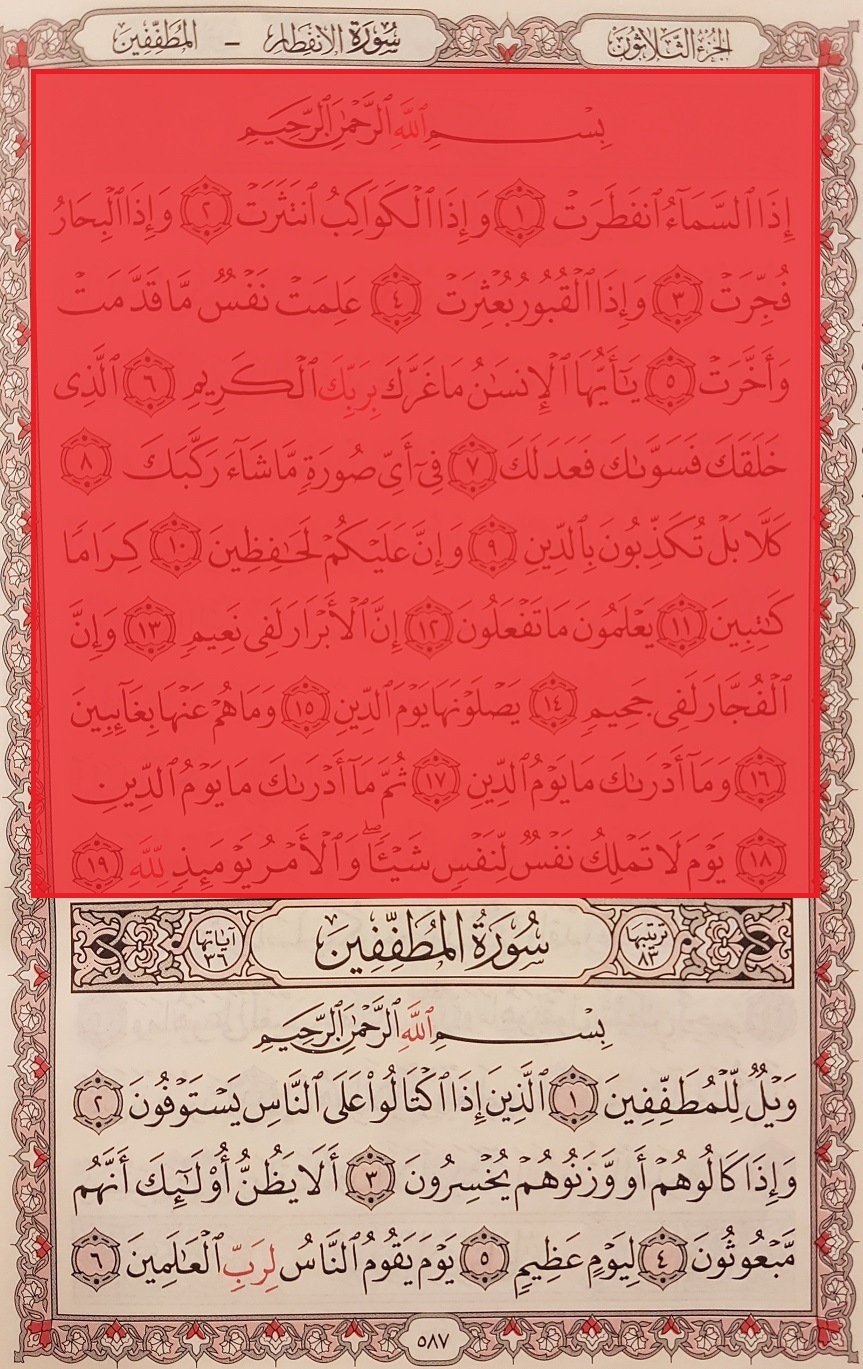 الجزء الثلاثون
سورة الانفطار - المطففين
بِسْمِ ٱللَّهِ ٱلرَّحْمَٰنِ ٱلرَّحِيمِ
إِذَا ٱلسَّمَآءُ ٱنفَطَرَتْ ١ وَإِذَا ٱلْكَوَاكِبُ ٱنتَثَرَتْ ٢ وَإِذَا ٱلْبِحَارُ
فُجِّرَتْ ٣ وَإِذَا ٱلْقُبُورُ بُعْثِرَتْ ٤ عَلِمَتْ نَفْسٌ مَّا قَدَّمَتْ
وَأَخَّرَتْ ٥ يَٰٓأَيُّهَا ٱلْإِنسَٰنُ مَا غَرَّكَ بِرَبِّكَ ٱلْكَرِيمِ ٦ ٱلَّذِى
خَلَقَكَ فَسَوَّىٰكَ فَعَدَلَكَ ٧ فِىٓ أَىِّ صُورَةٍ مَّا شَآءَ رَكَّبَكَ ٨
كَلَّا بَلْ تُكَذِّبُونَ بِٱلدِّينِ ٩ وَإِنَّ عَلَيْكُمْ لَحَٰفِظِينَ ١٠ كِرَامًا
كَٰتِبِينَ ١١ يَعْلَمُونَ مَا تَفْعَلُونَ ١٢ إِنَّ ٱلْأَبْرَارَ لَفِى نَعِيمٍ ١٣ وَإِنَّ
ٱلْفُجَّارَ لَفِى جَحِيمٍ ١٤ يَصْلَوْنَهَا يَوْمَ ٱلدِّينِ ١٥ وَمَا هُمْ عَنْهَا بِغَآئِبِينَ
١٦ وَمَآ أَدْرَىٰكَ مَا يَوْمُ ٱلدِّينِ ١٧ ثُمَّ مَآ أَدْرَىٰكَ مَا يَوْمُ ٱلدِّينِ
١٨ يَوْمَ لَا تَمْلِكُ نَفْسٌ لِّنَفْسٍ شَيْـًٔا ۖ وَٱلْأَمْرُ يَوْمَئِذٍ لِّلَّهِ ١٩
ترتيبها ٨٣ سُورَةُ المُطَفِّفِينَ آياتها ٣٦
بِسْمِ ٱللَّهِ ٱلرَّحْمَٰنِ ٱلرَّحِيمِ
وَيْلٌ لِّلْمُطَفِّفِينَ ١ ٱلَّذِينَ إِذَا ٱكْتَالُوا۟ عَلَى ٱلنَّاسِ يَسْتَوْفُونَ ٢
وَإِذَا كَالُوهُمْ أَو وَّزَنُوهُمْ يُخْسِرُونَ ٣ أَلَا يَظُنُّ أُو۟لَٰٓئِكَ أَنَّهُم
مَّبْعُوثُونَ ٤ لِيَوْمٍ عَظِيمٍ ٥ يَوْمَ يَقُومُ ٱلنَّاسُ لِرَبِّ ٱلْعَٰلَمِينَ ٦
٥٨٧